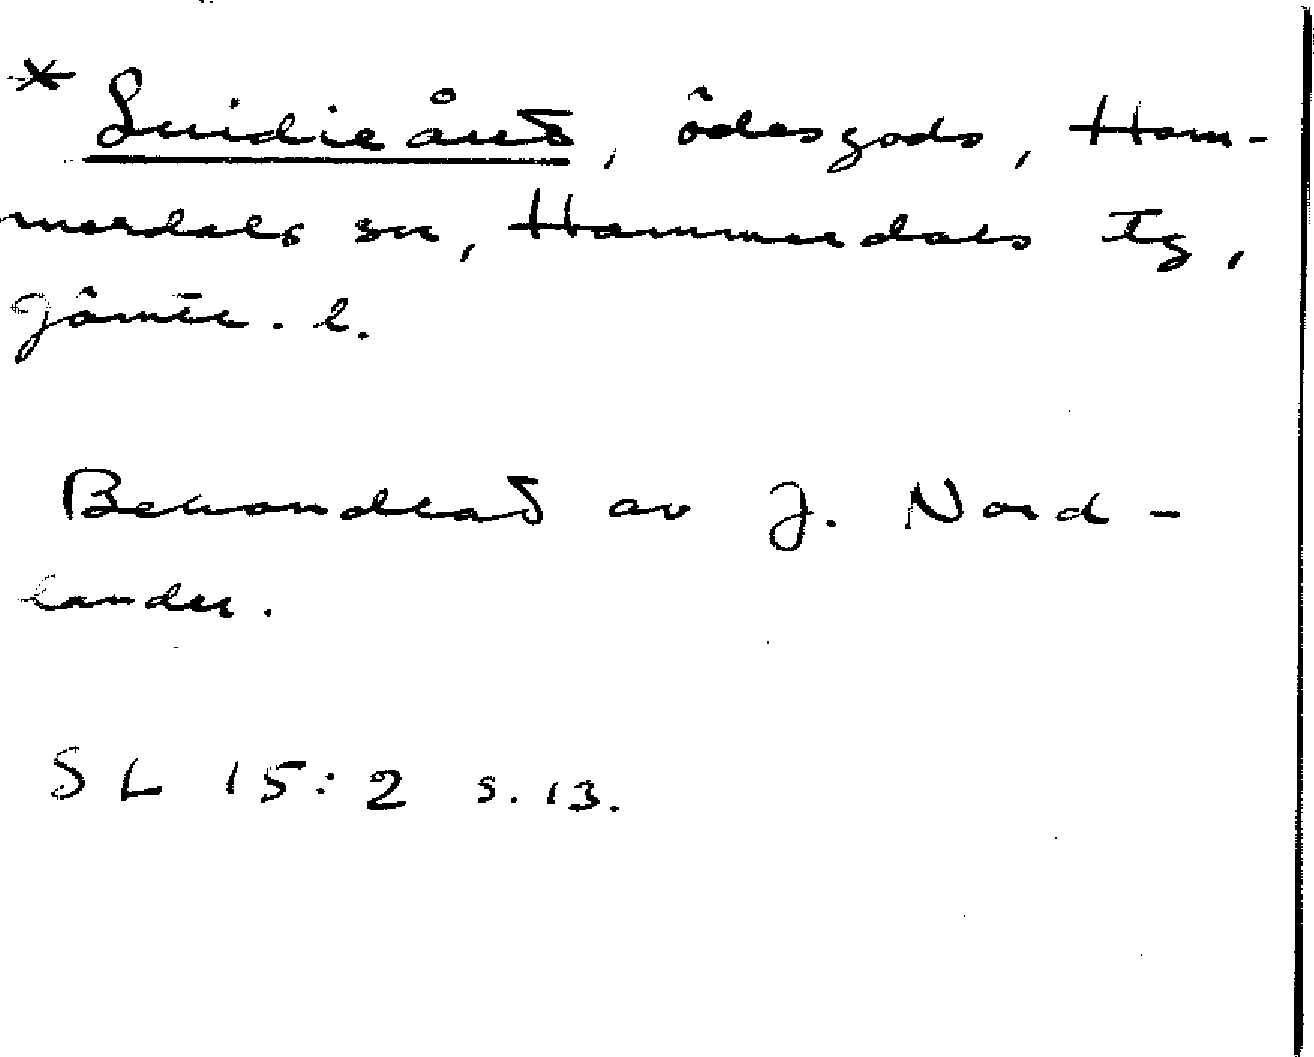 * , ödesgods, Ham-
merdals sn, Hammerdals tg,
Jämtl. l.
Behandlat av J. Nord-
lander.
SL 15:2 s. 13.